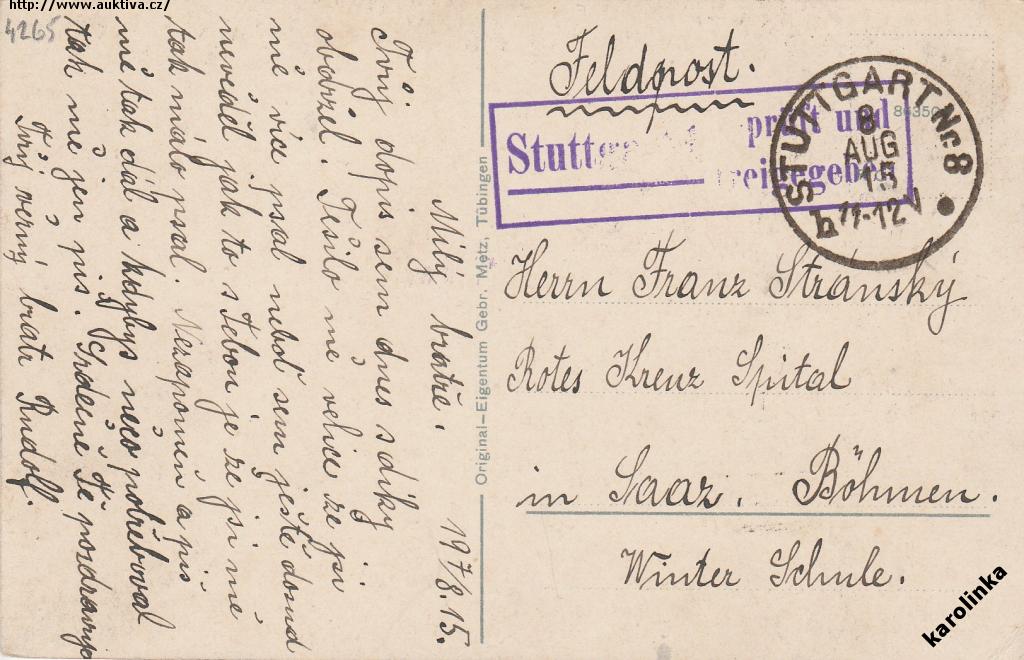 http://www.auktiva.cz/
4265
19 7/8. 15.
Milý bratře.
Tvůj dopis sem dnes s díky
obdržel. Těšilo mě velice že jsi
mě více psal neboť sem ještě domů
nevěděl jak to s Tebou je že jsi mě
tak málo psal. Nezapomeň a piš
mě tak dál a kdybys něco potřeboval
tak mě jen piš. Srdečně Tě pozdravuje
Tvůj věrný bratr Rudolf.
Original-Eigentum Gebr. Metz, Tübingen
Feldpost.
Stuttg prüft und
freigegeben
STUTTGART Nr. 8
8
AUG
15
b 11-12 V
Herrn Franz Stranský
Rotes Kreuz Spital
in Saaz. Böhmen.
Winter Schule.
karolinka